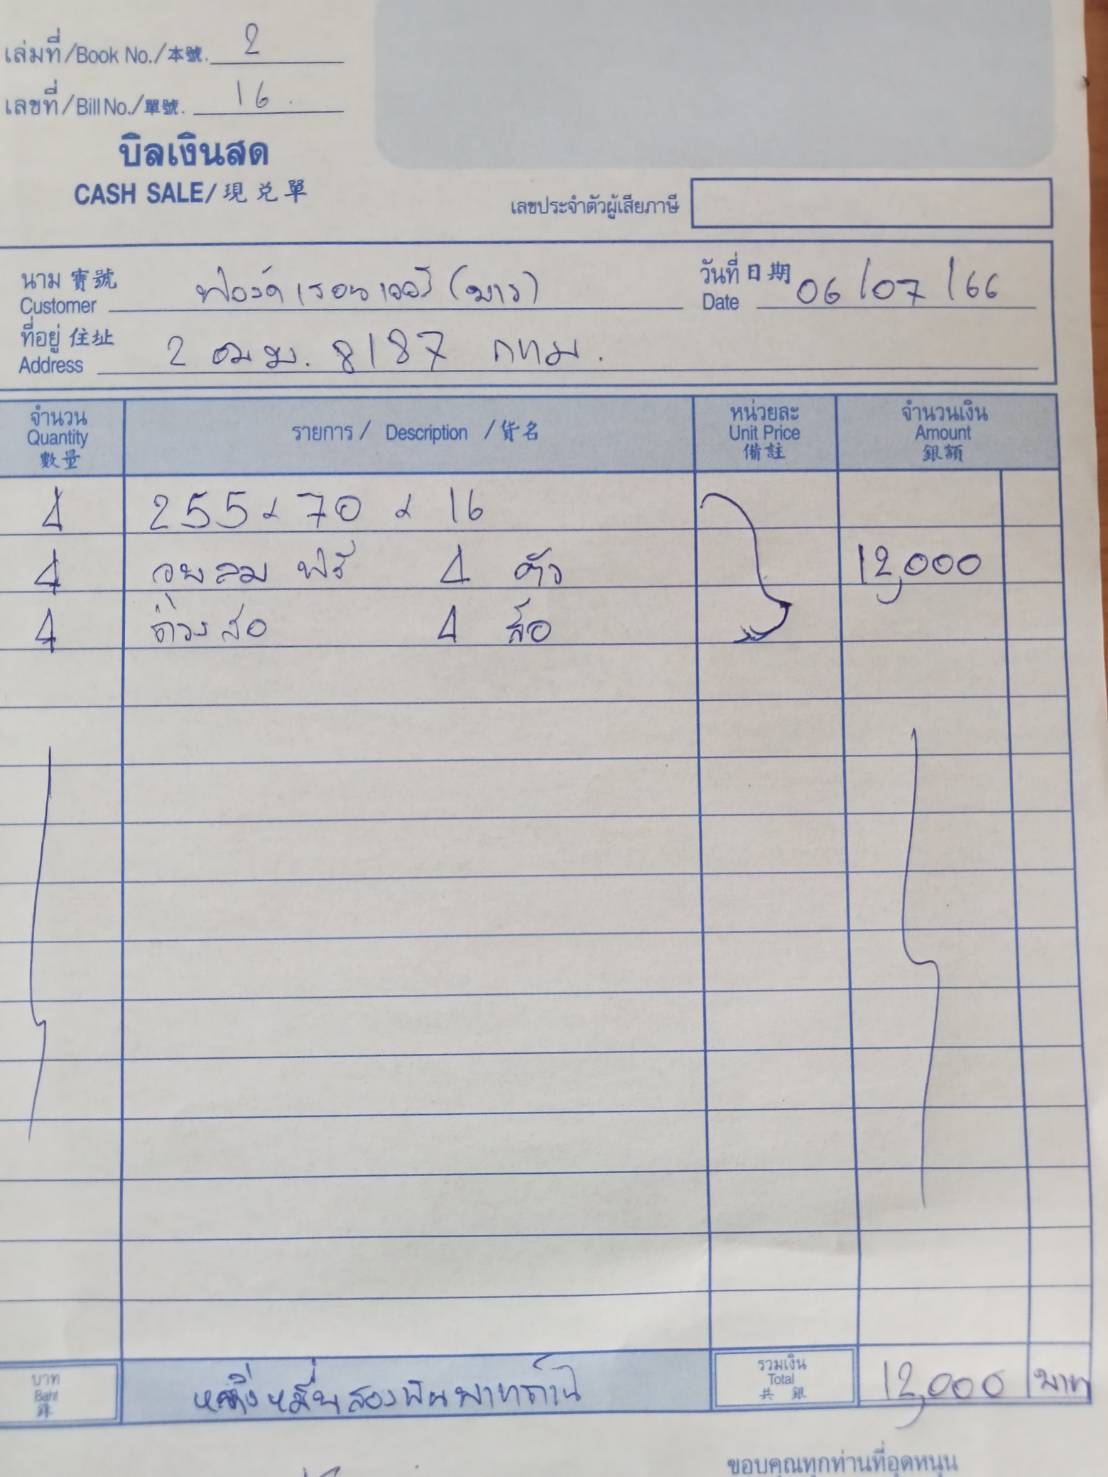 เล่มที่/Book No./本號. 2
เลขที่/Bill No./單號. 16.
บิลเงินสด
CASH SALE/現兑單
เลขประจำตัวผู้เสียภาษี
นาม 寶號 Customer ฟอร์ด เรนเจอร์ (ขาว) วันที่ 日期 Date 06/07/66
ที่อยู่ 住址 Address 2 ฒฆ. 8187 กทม.
จำนวน Quantity 數量 รายการ / Description / 貨名 หน่วยละ Unit Price 備註 จำนวนเงิน Amount 銀額
4 255 x 70 x 16
4 จุบลม ฟรี 4 ตัว 12,000
4 ถ่วงล้อ 4 ล้อ
บาท Baht 銖 หนึ่งหมื่นสองพันบาทถ้วน รวมเงิน Total 共銀 12,000 บาท
ขอบคุณทุกท่านที่อุดหนุน